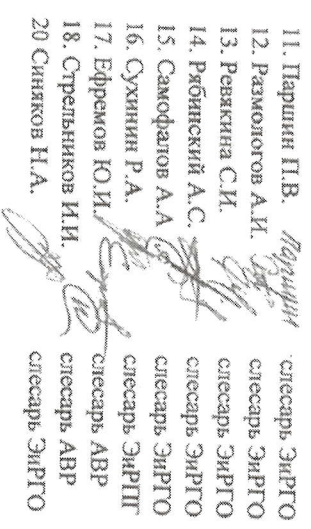 11. Паршин П.В. Паршин слесарь ЭиРГО
12. Размологов А.И. слесарь ЭиРГО
13. Ревякина С.И. слесарь ЭиРГО
14. Рябинский А.С. слесарь ЭиРГО
15. Самофалов А.А слесарь ЭиРГО
16. Сухинин Р.А. слесарь ЭиРПГ
17. Ефремов Ю.И. слесарь АВР
18. Стрельников И.И. слесарь АВР
20 Синяков Н.А. слесарь ЭиРГО